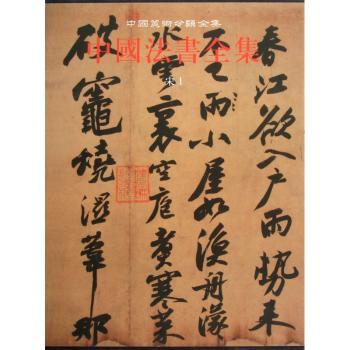 中國美術分類全集
中國法書全集
宋1
春江欲入戶雨勢來
不已雨小屋如漁舟濛
水雲裏空庖煮寒菜
破竈燒濕葦那